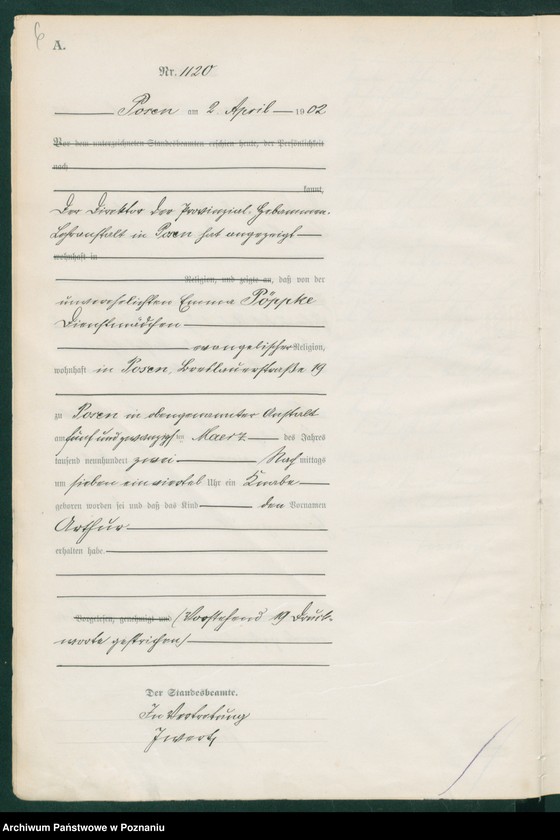 A.
Nr. 1120
Posen am 2. April 1902
Vor dem unterzeichneten Standesbeamten erschien heute, der Persönlichkeit
nach
kannt,
Der Direktor der Provinzial-Hebammen-
Lehranstalt in Posen hat angezeigt
wohnhaft in
Religion, und zeigte an, daß von der
unverehelichten Emma Pöppke
Dienstmädchen
evangelischer Religion,
wohnhaft in Posen, Breslauerstraße 19
zu Posen in obengenannter Anstalt
am fünfundzwanzigsten Maerz des Jahres
tausend neunhundert zwei Nachmittags
um sieben einviertel Uhr ein Knabe
geboren worden sei und daß das Kind den Vornamen
Arthur
erhalten habe.
Vorgelesen, genehmigt und (Vorstehend 19 Druck-
worte gestrichen)
Der Standesbeamte.
In Vertretung
Archiwum Państwowe w Poznaniu